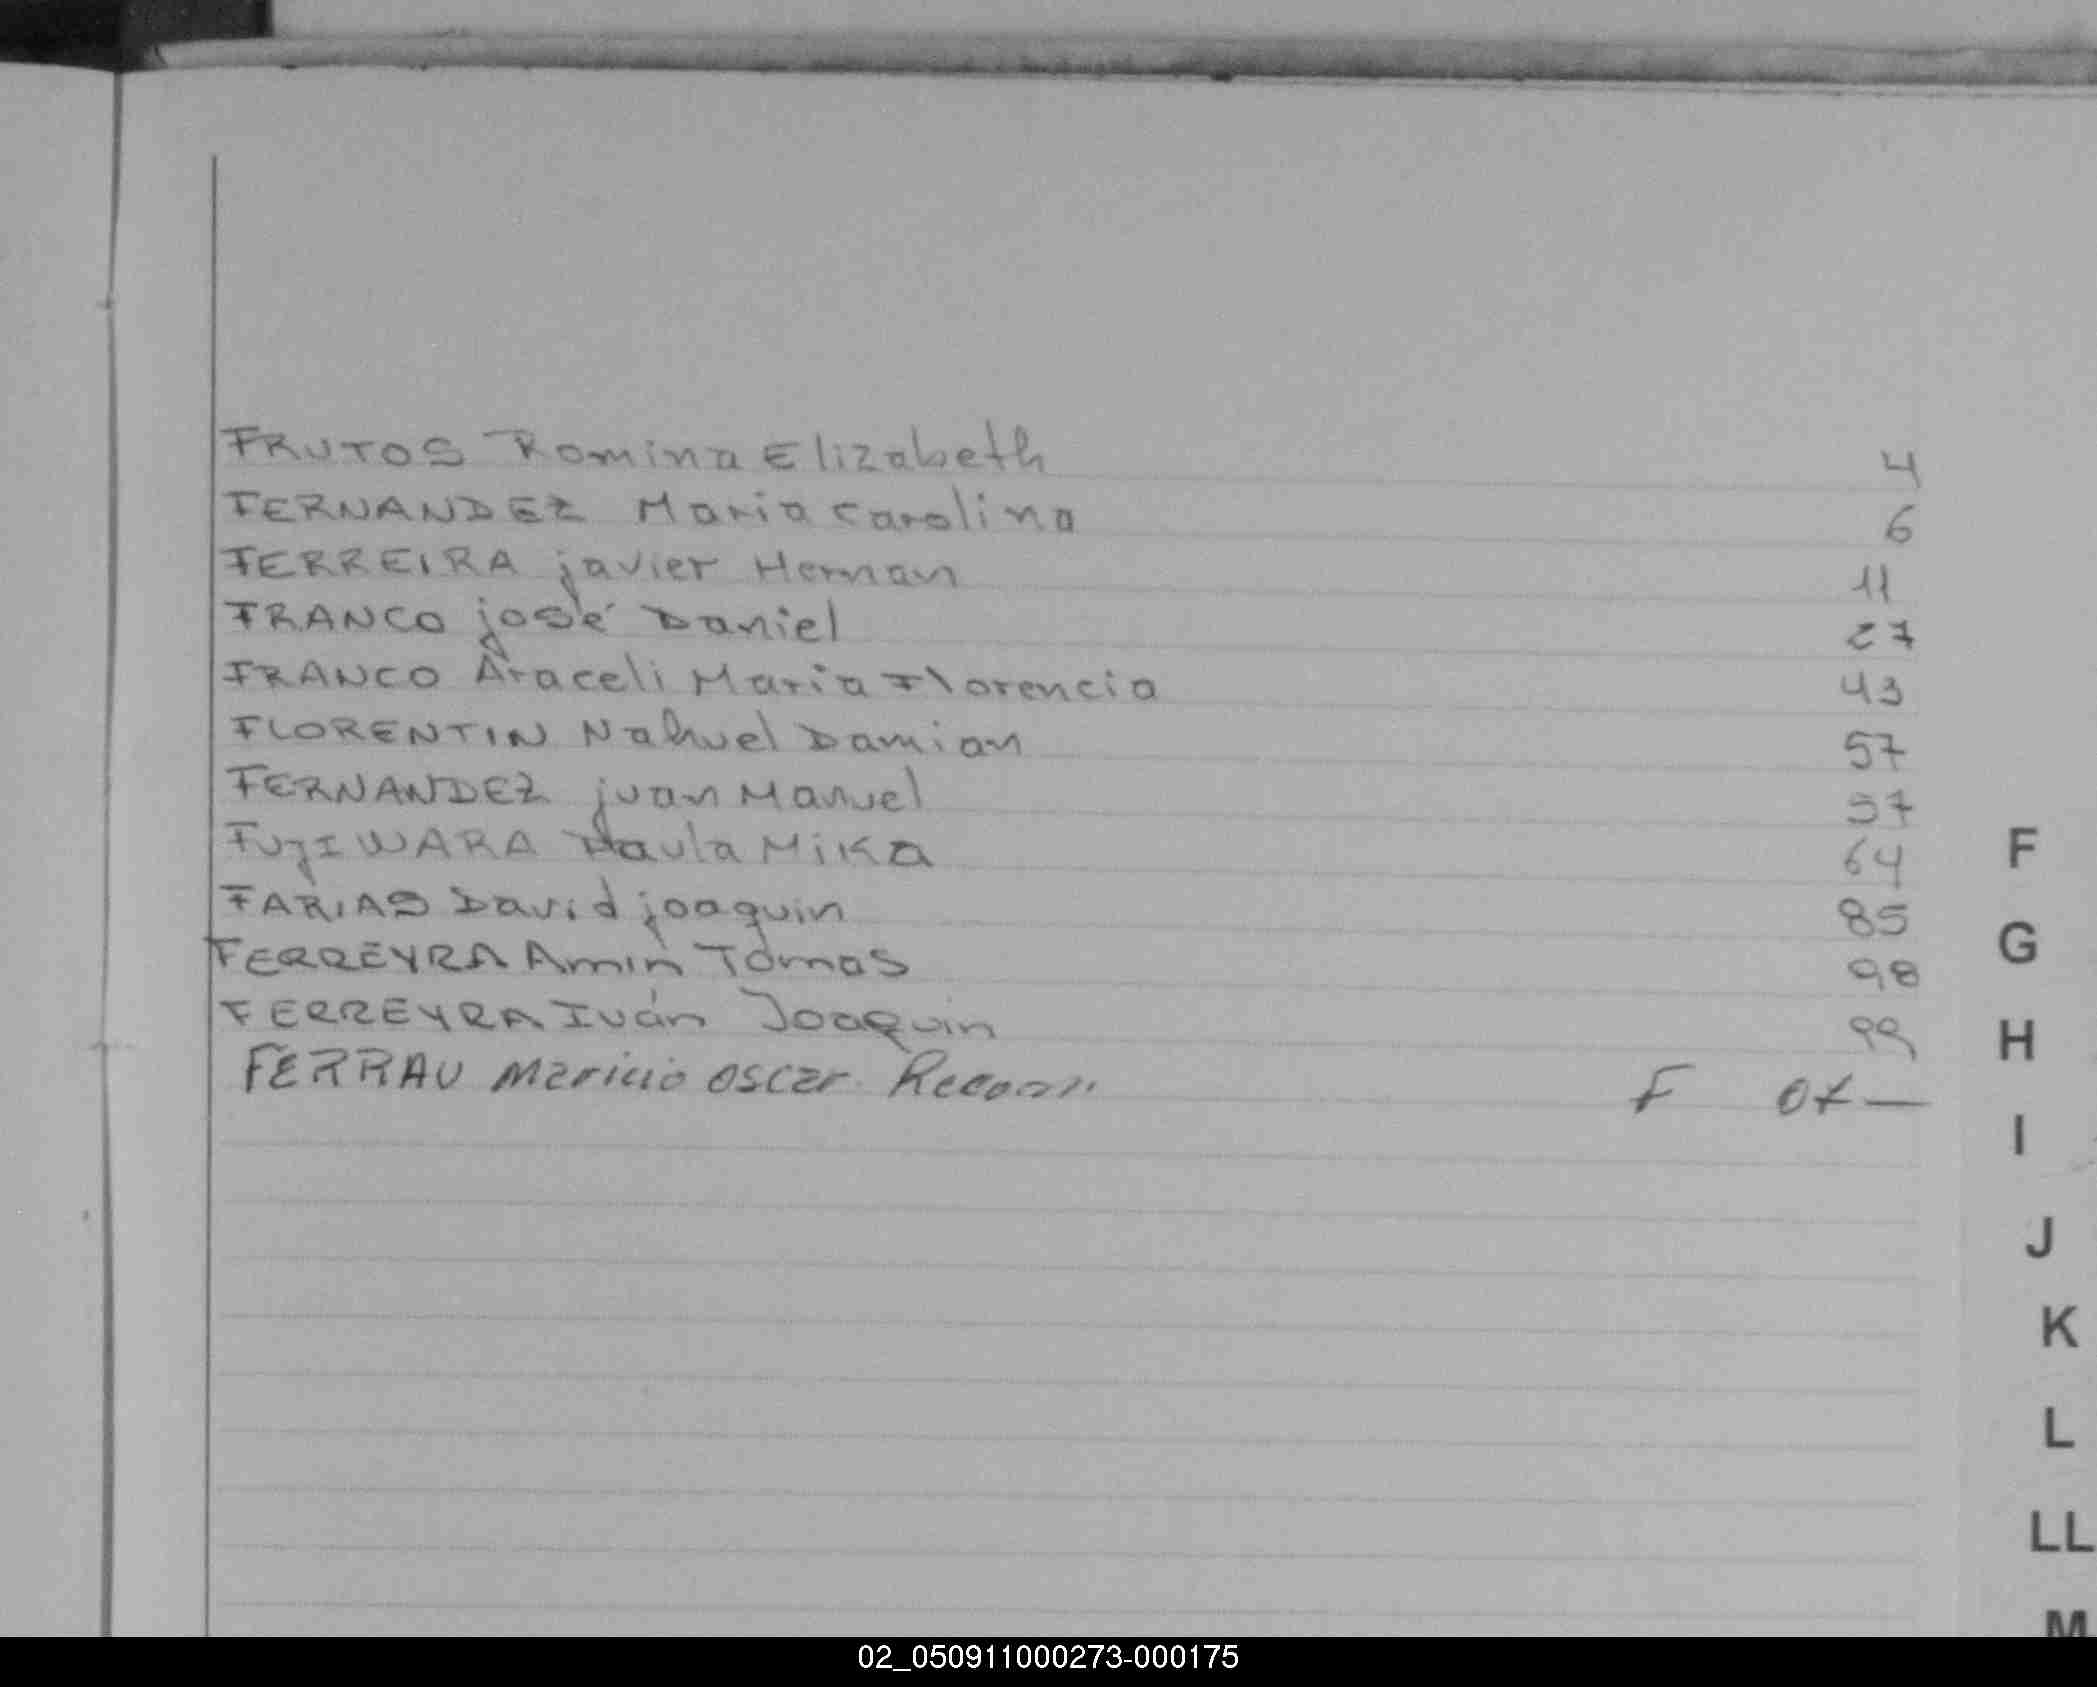 FRUTOS Romina Elizabeth 4
FERNANDEZ Maria Carolina 6
FERREIRA javier Hernan 11
FRANCO josé Daniel 27
FRANCO Araceli Maria Florencia 43
FLORENTIN Nahuel Damian 57
FERNANDEZ juan Manuel 57
FUjIWARA Paula MiKa 64
FARIAS David joaquin 85
FERREYRA Amin Tomas 98
FERREYRA Iván Joaquin 99
FERRAU Maricio Oscar F
F
G
H
I
J
K
L
LL
M
02_050911000273-000175